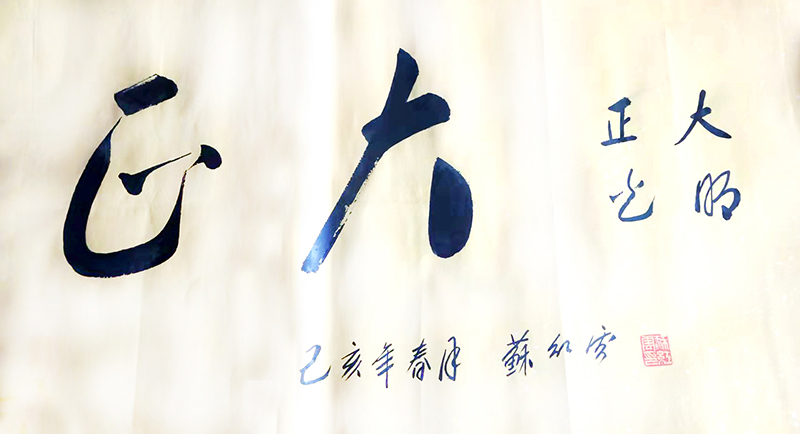 正大
正大
光明
己亥年春月 蘇紅